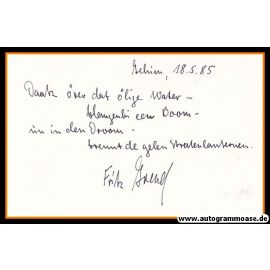 Achim, 18.5.85
Daak över dat ölige Water –
klangenbi een Doom –
un in den Droom –
brennt de gelen Stratenlanteernen.
Fritz
www.autogrammoase.de